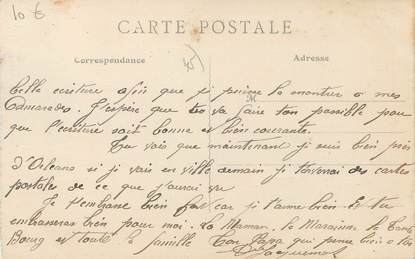 10 €
CARTE POSTALE
Correspondance
Adresse
belle ecriture afin que je puisse la montrer a mes
Camarades. J'espère que tu va faire ton possible pour
que l'ecriture soit bonne et bien courante.
Tu vois que maintenant je suis bien près
d'Orleans si je vais en ville demain je t'enverai des cartes
postales de ce que j'aurai vu
Je t'embrasse bien fort car je t'aime bien Et tu
embrasseras bien pour moi. La Maman. La Marraine. La Tante
Bourg et toute la famille Ton Papa qui pense bien a toi